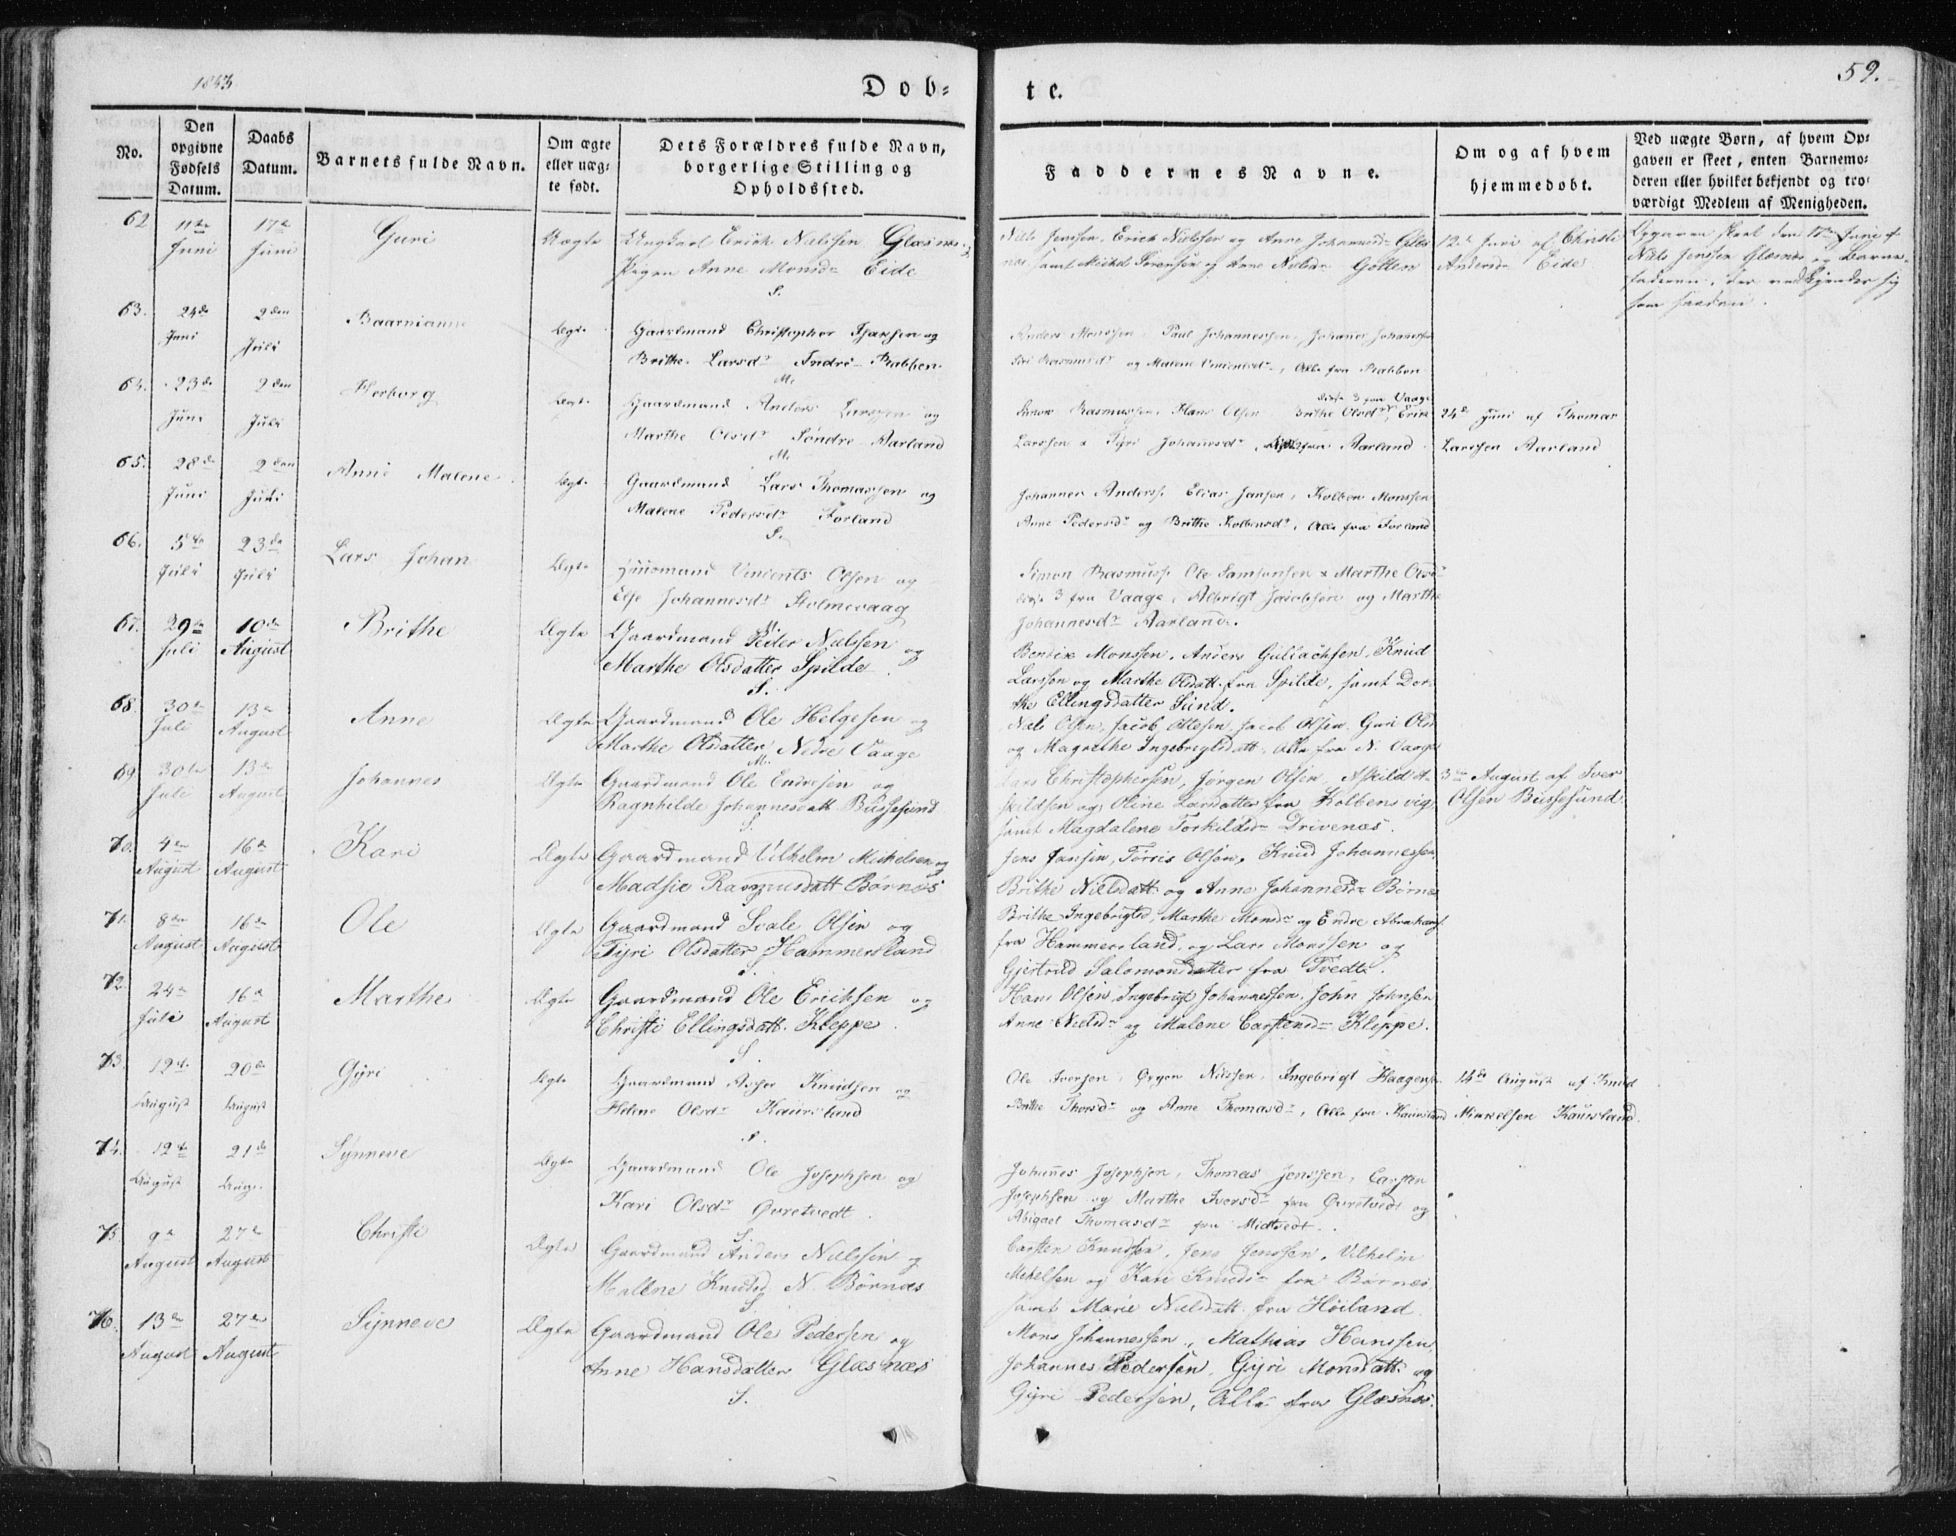 1843
Dob-
te.
59.
No.
Den opgivne Fødsels Datum.
Daabs Datum.
Barnets fulde Navn.
Om ægte eller uæg-te født.
Dets Forældres fulde Navn, borgerlige Stilling og Opholdssted.
Faddernes Navne.
Om og af hvem hjemmedøbt.
Ved uægte Børn, af hvem Op-
gaven er skeet, enten Barnemo-
deren eller hvilket bekjendt og tro-
værdigt Medlem af Menigheden.
62 11te 17de Guri Uægte Ungkarl Erich Nielssen Glæsnæs
Juni Juni Pigen Anne Monsdr Eide
S.
Niels Jenssen, Erich Nielssen og Anne Johannesdr Glæs-
næs samt Michel Sørensen og Anne Nielsdr Golten
12te Juni af Christi
Andersdr Eide
Opgaven skeet den 17de Juni af
Niels Jenssen Glæsnæs og Barne-
faderen, der vedkjender sig
som saadan.
63. 24de 2den Baarnianne Ægte Gaardmand Christopher og
Juni Juli Brithe Larsdr Indre Rabben
M.
Anders Monssen, Paul Johannessen, Johannes Johannessen
Siri Rasmusdr og Malene, Alle fra Rabben
64. 23de 2den Herborg Ægte Gaardmand Anders Larssen og
Juni Juli Marthe Olsdr Søndre Aarland
M.
disse 3 fra Vaage
Simon Rasmussen, Hans Olsen, Brithe Olsdr, Erik
Larssen & Tyri Johannesdr, fra Aarland
24de Juni af Thomas
Larssen Aarland
65. 28de 2den Anne Malene Ægte Gaardmand Lars Thomassen og
Juni Juli Malene Pedersdr Forland
S.
Johannes Anderss. Elias Jansen, Kolben Monssen
Anne Pedersdr og Brithe Kolbensdr, Alle fra Forland
66. 5te 23de Lars Johan Ægte Huusmand Vincents Olsen og
Juli Juli Else Johannesdr Stolmevaag
M.
Simon Rasmuss. Ole Samsonsen & Marthe Olsdr
disse 3 fra Vaage, Albrigt Jacobsen og Marthe
Johannesdr Aarland.
67. 29de 10de Brithe Ægte Gaardmand Peder Nielssen og
Juli August Marthe Olsdatter Spilde
S.
Bendix Monssen, Anders Gulliachsen, Knud
Larssen og Marthe Olsdatt. fra Spilde, samt Dor-
the Ellingsdatter Sund.
68. 30te 13de Anne Ægte Gaardmand Ole Helgesen og
Juli August Marthe Olsdatter Nedre Vaage
M.
Niels Olsen, Jacob Ottesen, Jacob Olsen, Guri Olsd
og Magrethe Ingebrigtsdatt. Alle fra N. Vaage
69 30te 13de Johannes Ægte Gaardmand Ole Endresen og
Juli August Ragnhilde Johannesdatt. Bussesund
S.
Lars Christophersen, Jørgen Olsen, Askild A-
skildsen og Oline Larsdatter fra Kolbensvig,
samt Magdalene Torkildsdr Drivenæs.
3die August af Iver
Olsen Bussesund
70. 4de 16de Kari Ægte Gaardmand Vilhelm Michelsen og
August August Madsie Rasmusdatt. Børnæs
Jens Jansen, Torris Olsen, Knud Johannessen,
Brithe Nielsdatt. og Anne Johannesdr Børnæs
71. 8de 16de Ole Ægte Gaardmand Svale Olsen og
August August Tyri Olsdatter Hammersland
S.
Brithe Ingebrigtsd, Marthe Monsdr og Endre Abrahams.
fra Hammersland, og Lars Monssen og
Gjertrud Salomonsdatter fra Tvedt.
72. 24de 16de Marthe Ægte Gaardmand Ole Erichsen og
Juli August Christi Ellingsdatt. Kleppe
S.
Hans Olsen, Ingebrigt Johannessen, John Johnsen
Anne Nielsdr og Malene Carstensdr Kleppe.
73. 12te 20de Gyri Ægte Gaardmand Asser Knudsen og
August August Helene Olsdr Kaursland
S.
Ole Iversen, Ørgen Nilssen, Ingebrigt Haagens.
Brithe Thorsdr og Anne Thomasdr, Alle fra Kaursland
14de August af Knud
Kaursland.
74. 12te 21de Synneve Ægte Gaardmand Ole Josephsen og
August Aug. Kari Olsdr Qvretvedt.
S.
Johannes Josephsen, Thomas Jenssen, Carsten
Josephsen og Marthe Iversdr fra Qvretvedt og
Abigael Thomasdr fra Midtvedt.
75 9de 27de Christi Ægte Gaardmand Anders Nielssen og
August August Malene Knudsd. N. Børnæs
S
Carsten Knudsen, Jens Jenssen, Vilhelm
Mekelsen og Kari Knudsdr fra Børnæs
samt Marie Nielsdatt. fra Høiland.
76. 13de 27de Synneve Ægte Gaardmand Ole Pedersen og
August August Anne Hansdatter Glæsnæs
S.
Mons Johannessen, Mathias Hanssen,
Johannes Pedersen, Gyri Monsdatt. og
Gyri Pedersen, Alle fra Glæsnæs.